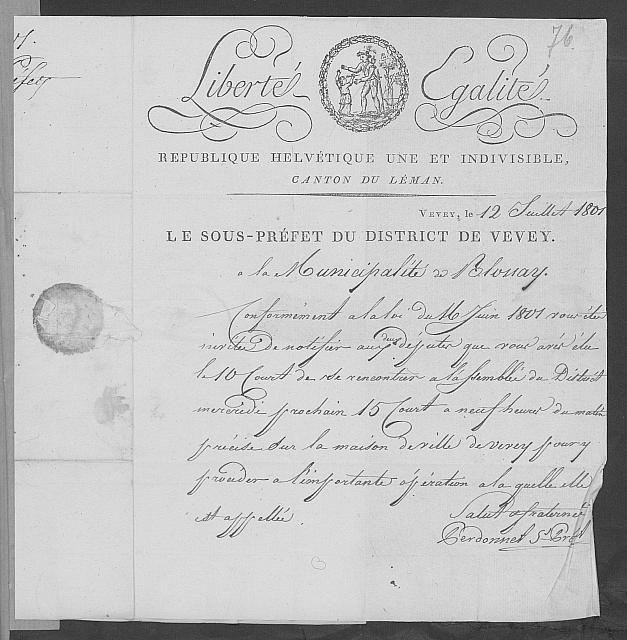 76.
Liberté Egalité
REPUBLIQUE HELVÉTIQUE UNE ET INDIVISIBLE,
CANTON DU LÉMAN.
VEVEY, le 12 Juillet 1801
LE SOUS-PRÉFET DU DISTRICT DE VEVEY.
a la Municipalité de Blonay.
Conformément a la loi du 16 Juin 1801 vous étes
invitée de notifier aux deux députés que vous avés élu
le 10 Court de se rencontrer a lassemblée du District
mercredi prochain 15 Court a neuf heures du matin
précise sur la maison de ville de vevey pour y
proceder a l'importante opération a la quelle elle
est appellée.
Salut & fraternité
Perdonnet S.s Préf.